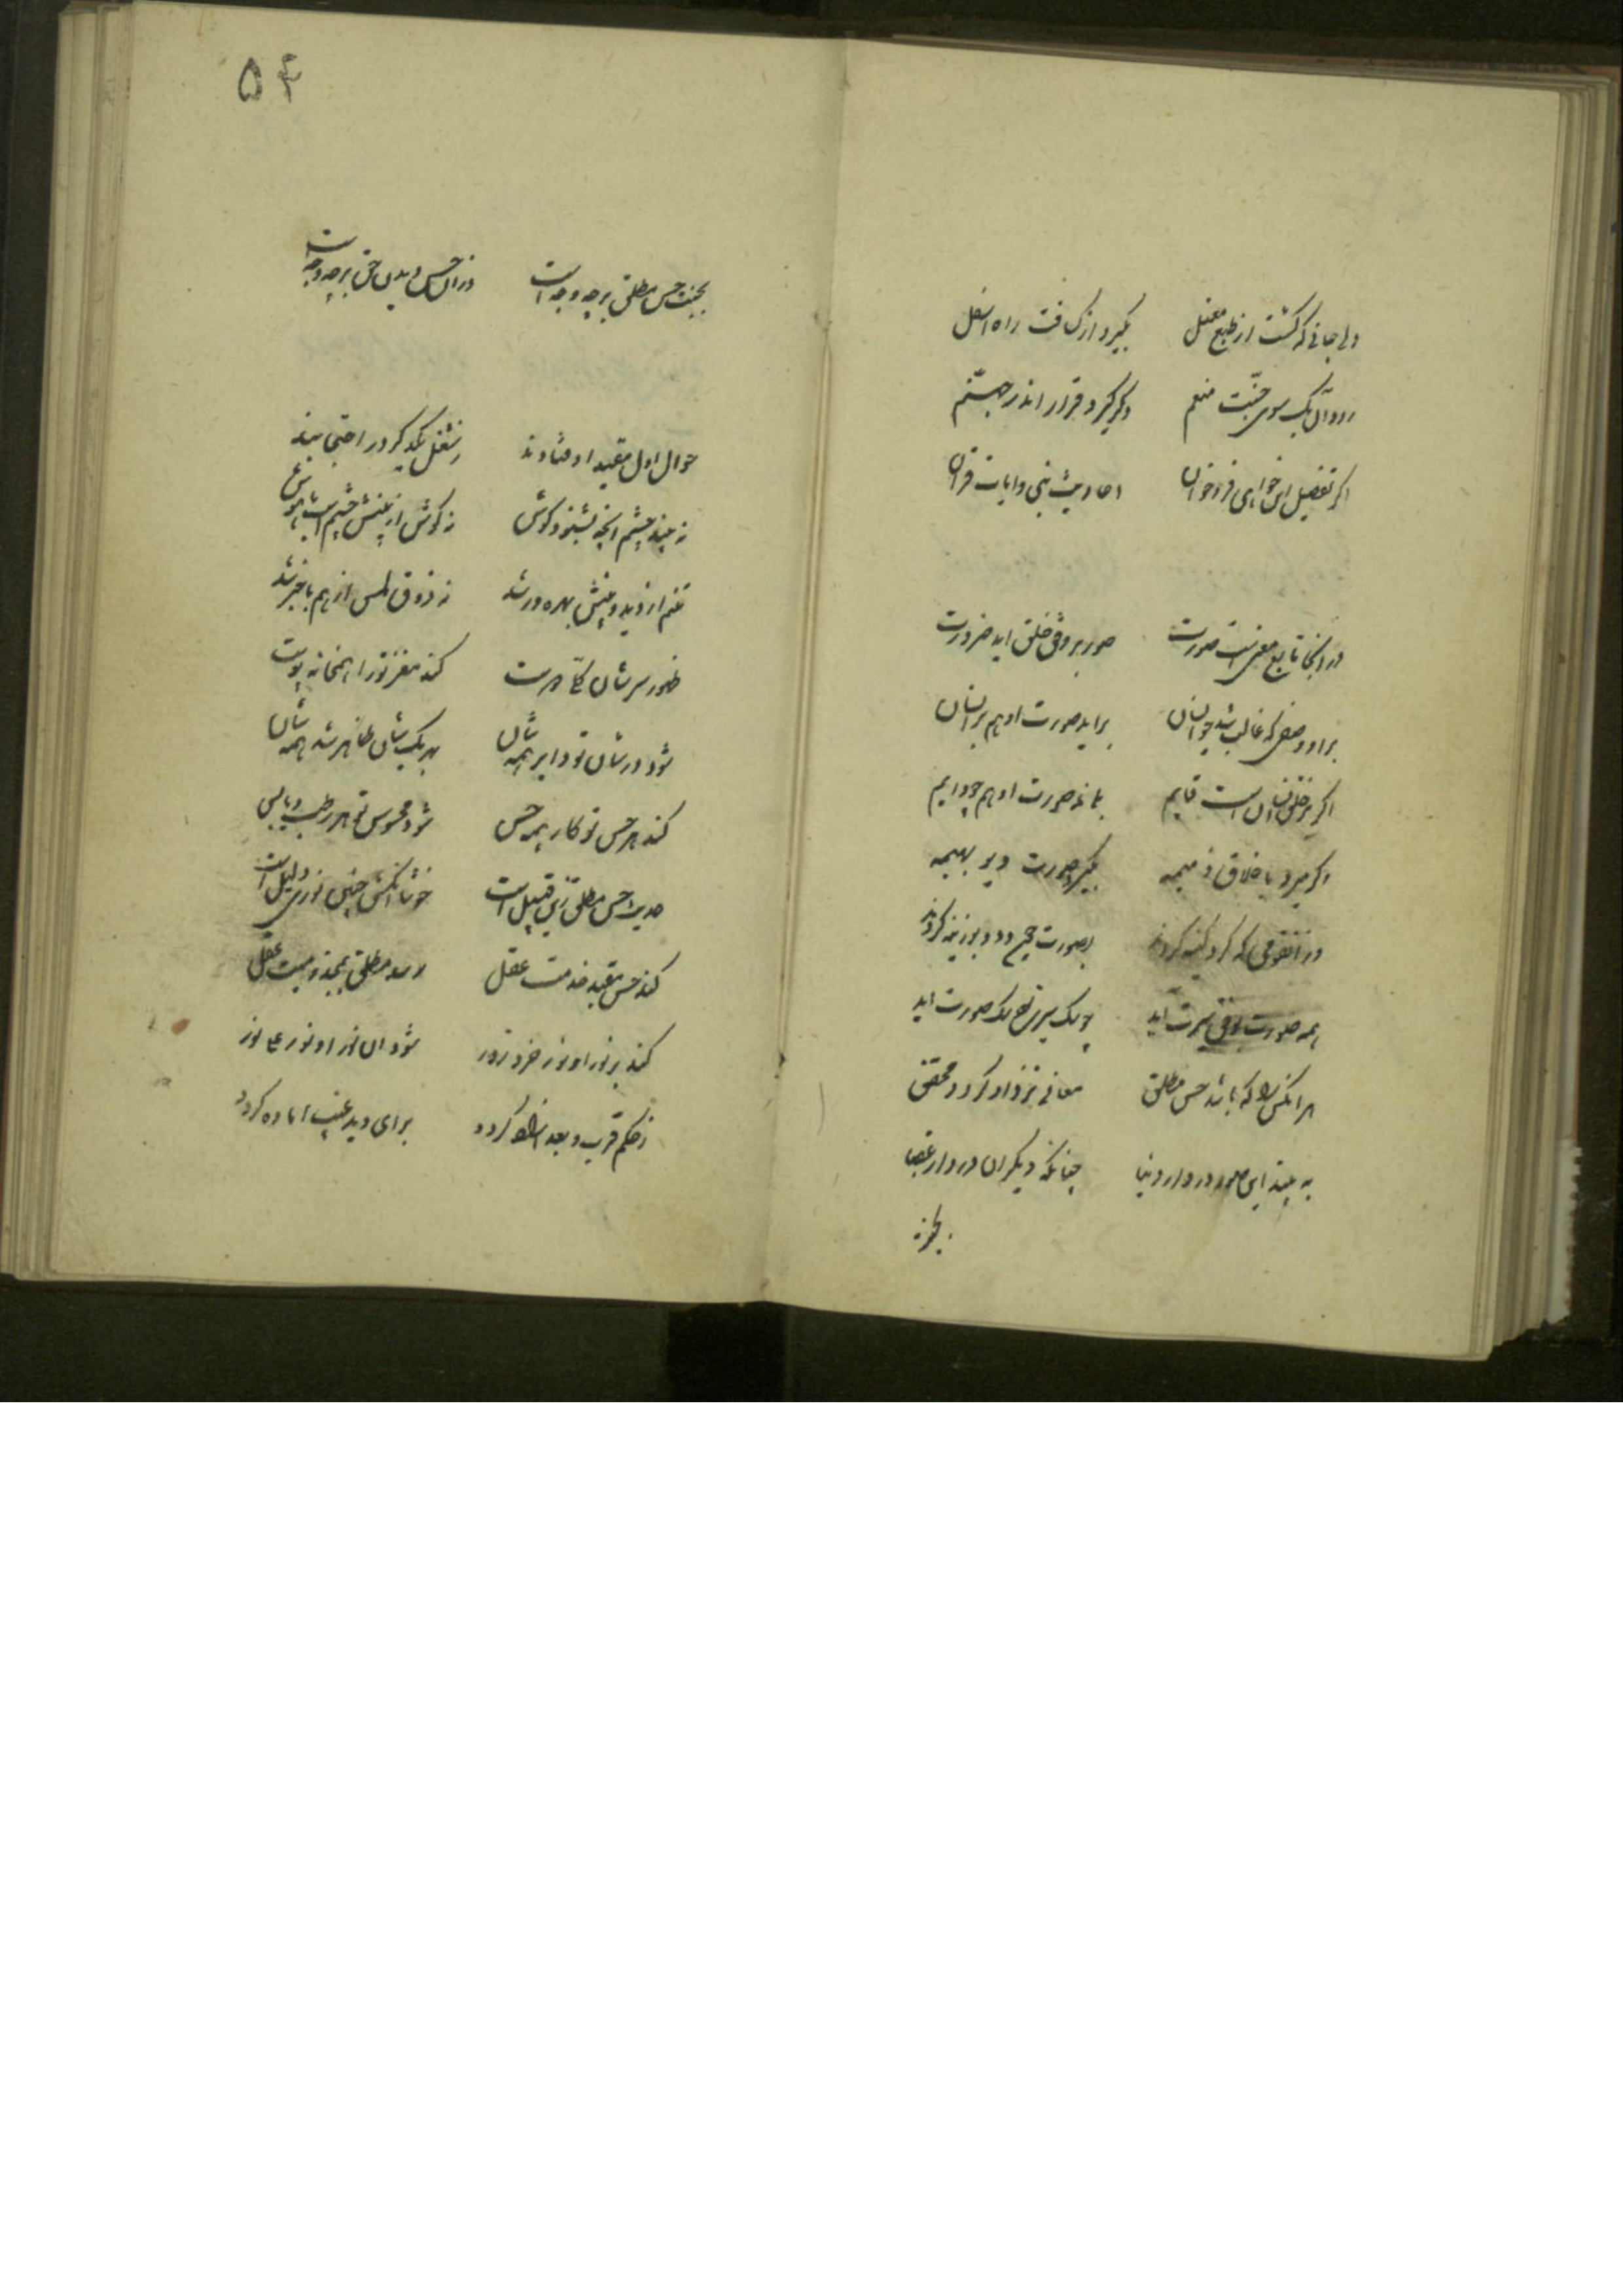 ولی جانی که گشت از طبع معتل بگیرد از کثافت راه اسفل
رود آن یک سوی جنّت منعم دگر گیرد قرار اندر جهنّم
اگر تفصیل این خواهی فروخوان احادیث نبی و ایات قران
در انجا تابع معنی است صورت صور بر وفق خلق اید ضرورت
بر او وصفی که غالب شد چو انسان براید صورت او هم بر انسان
اگر بر خلق انسان است قایم بماند صورت او هم چو دایم
اگر میرد باخلاق ذمیمه بگیرد صورت دیو بهیمه
در انقومی که گرد کینه گردند بصورت جمع دد و بوزینه گردند
همه صورت بوفق سیرت اید چو یک سیرت یک صورت اید
هر انکس را که باشد حس مطلق معانی نزد او گردد محقق
به بیند این صور در دار دنیا چنانکه دیگران در دار عقبا
بجز
۵۴
حس مطلق بر چه وجه است در ان حس دیدن حق بر چه وجه است
حواس اول مقید اوفتادند ز شغل یکدیگر در احتجابند
نه بیند چشم انچه بشنود گوش نه گوش از بینش چشم است با هوش
نه شم از دید و بینش بهره ور شد نه ذوق و لمس از هم با خبر شد
ظهور سر شان کند مغز تو را همخانه پوست
شود در شان تو دایر همه شان بهر یک شان ظاهر شد همه شان
کند هر حس تو کار همه حس شود محسوس تو هر رطب و یابس
حدیث حس مطلق زین قبیل است خوشا انکش چنین نوری دلیل است
کند حس مقید خدمت عقل
کند بر نور او نور خرد زور شود ان نور او نور علی نور
ز حکم قرب و بعد ازاده گردد برای دید غیب اماده گردد